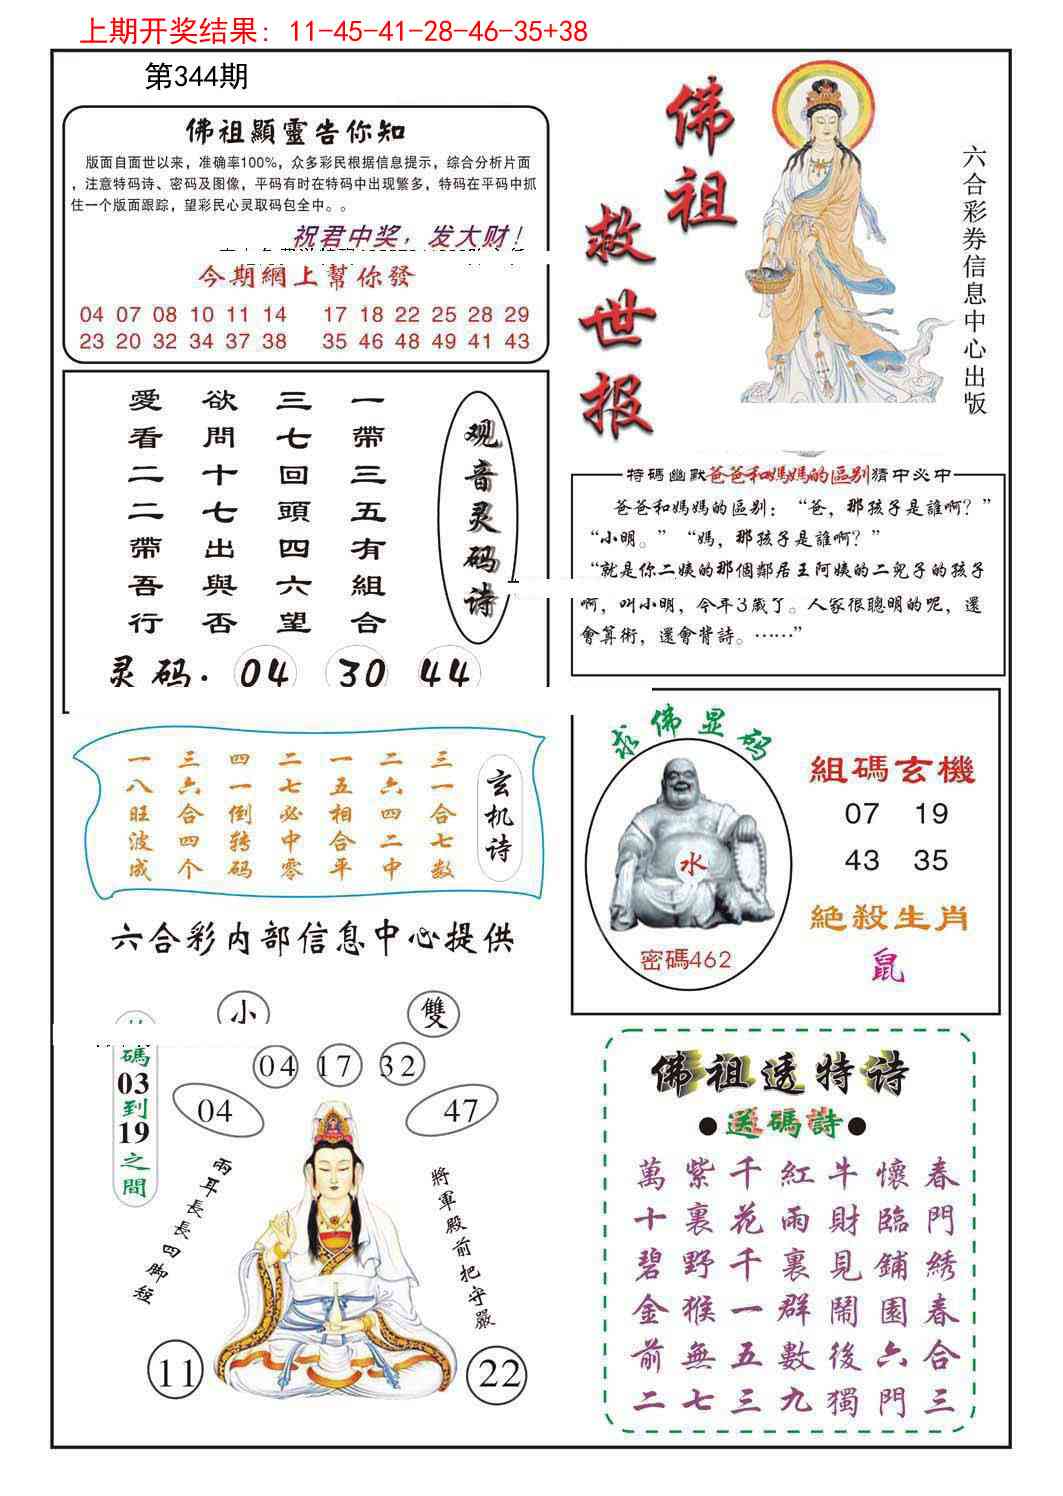 上期开奖结果: 11-45-41-28-46-35+38
第344期
佛祖顯靈告你知
版面自面世以来，准确率100%，众多彩民根据信息提示，综合分析片面
，注意特码诗、密码及图像，平码有时在特码中出现繁多，特码在平码中抓
住一个版面跟踪，望彩民心灵取码包全中。。
祝君中奖，发大财！
今期網上幫你發
04 07 08 10 11 14 17 18 22 25 28 29
23 20 32 34 37 38 35 46 48 49 41 43
佛祖
救世报
六合彩券信息中心出版
观音灵码诗
一帶三五有組合
三七回頭四六望
欲問十七出與否
愛看二二帶吾行
灵码. 04 30 44
特碼幽默爸爸和媽媽的區别猜中必中
爸爸和媽媽的區别：“爸，那孩子是誰啊？”
“小明。”“媽，那孩子是誰啊？”
“就是你二姨的那個鄰居王阿姨的二兒子的孩子
啊，叫小明，今年3歲了。人家很聰明的呢，還
會算術，還會背詩。……”
玄机诗
三一合七数
二六四二中
一五相合平
二七必中零
四一倒转码
三六合四个
一八旺波成
求佛显码
水
密碼462
組碼玄機
07 19
43 35
絕殺生肖
鼠
六合彩内部信息中心提供
小 雙
碼03到19之間
04 17 32
04 47
兩耳長長四脚短
將軍殿前把守嚴
11 22
佛祖透特诗
●送碼詩●
春門綉春合三
懷臨鋪園六門
牛財見鬧後獨
紅雨裏群數九
千花千一五三
紫裏野猴無七
萬十碧金前二